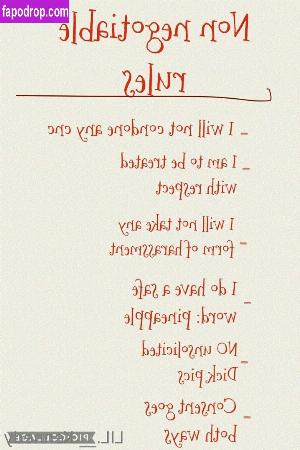 fapodrop.com
Non negotiable
rules
- I will not condone any cnc
- I am to be treated
with respect
I will not take any
- form of harassment
- I do have a safe
word: pineapple
- NO unsolicited
Dick pics
- Consent goes
both ways
PIC•COLLAGE